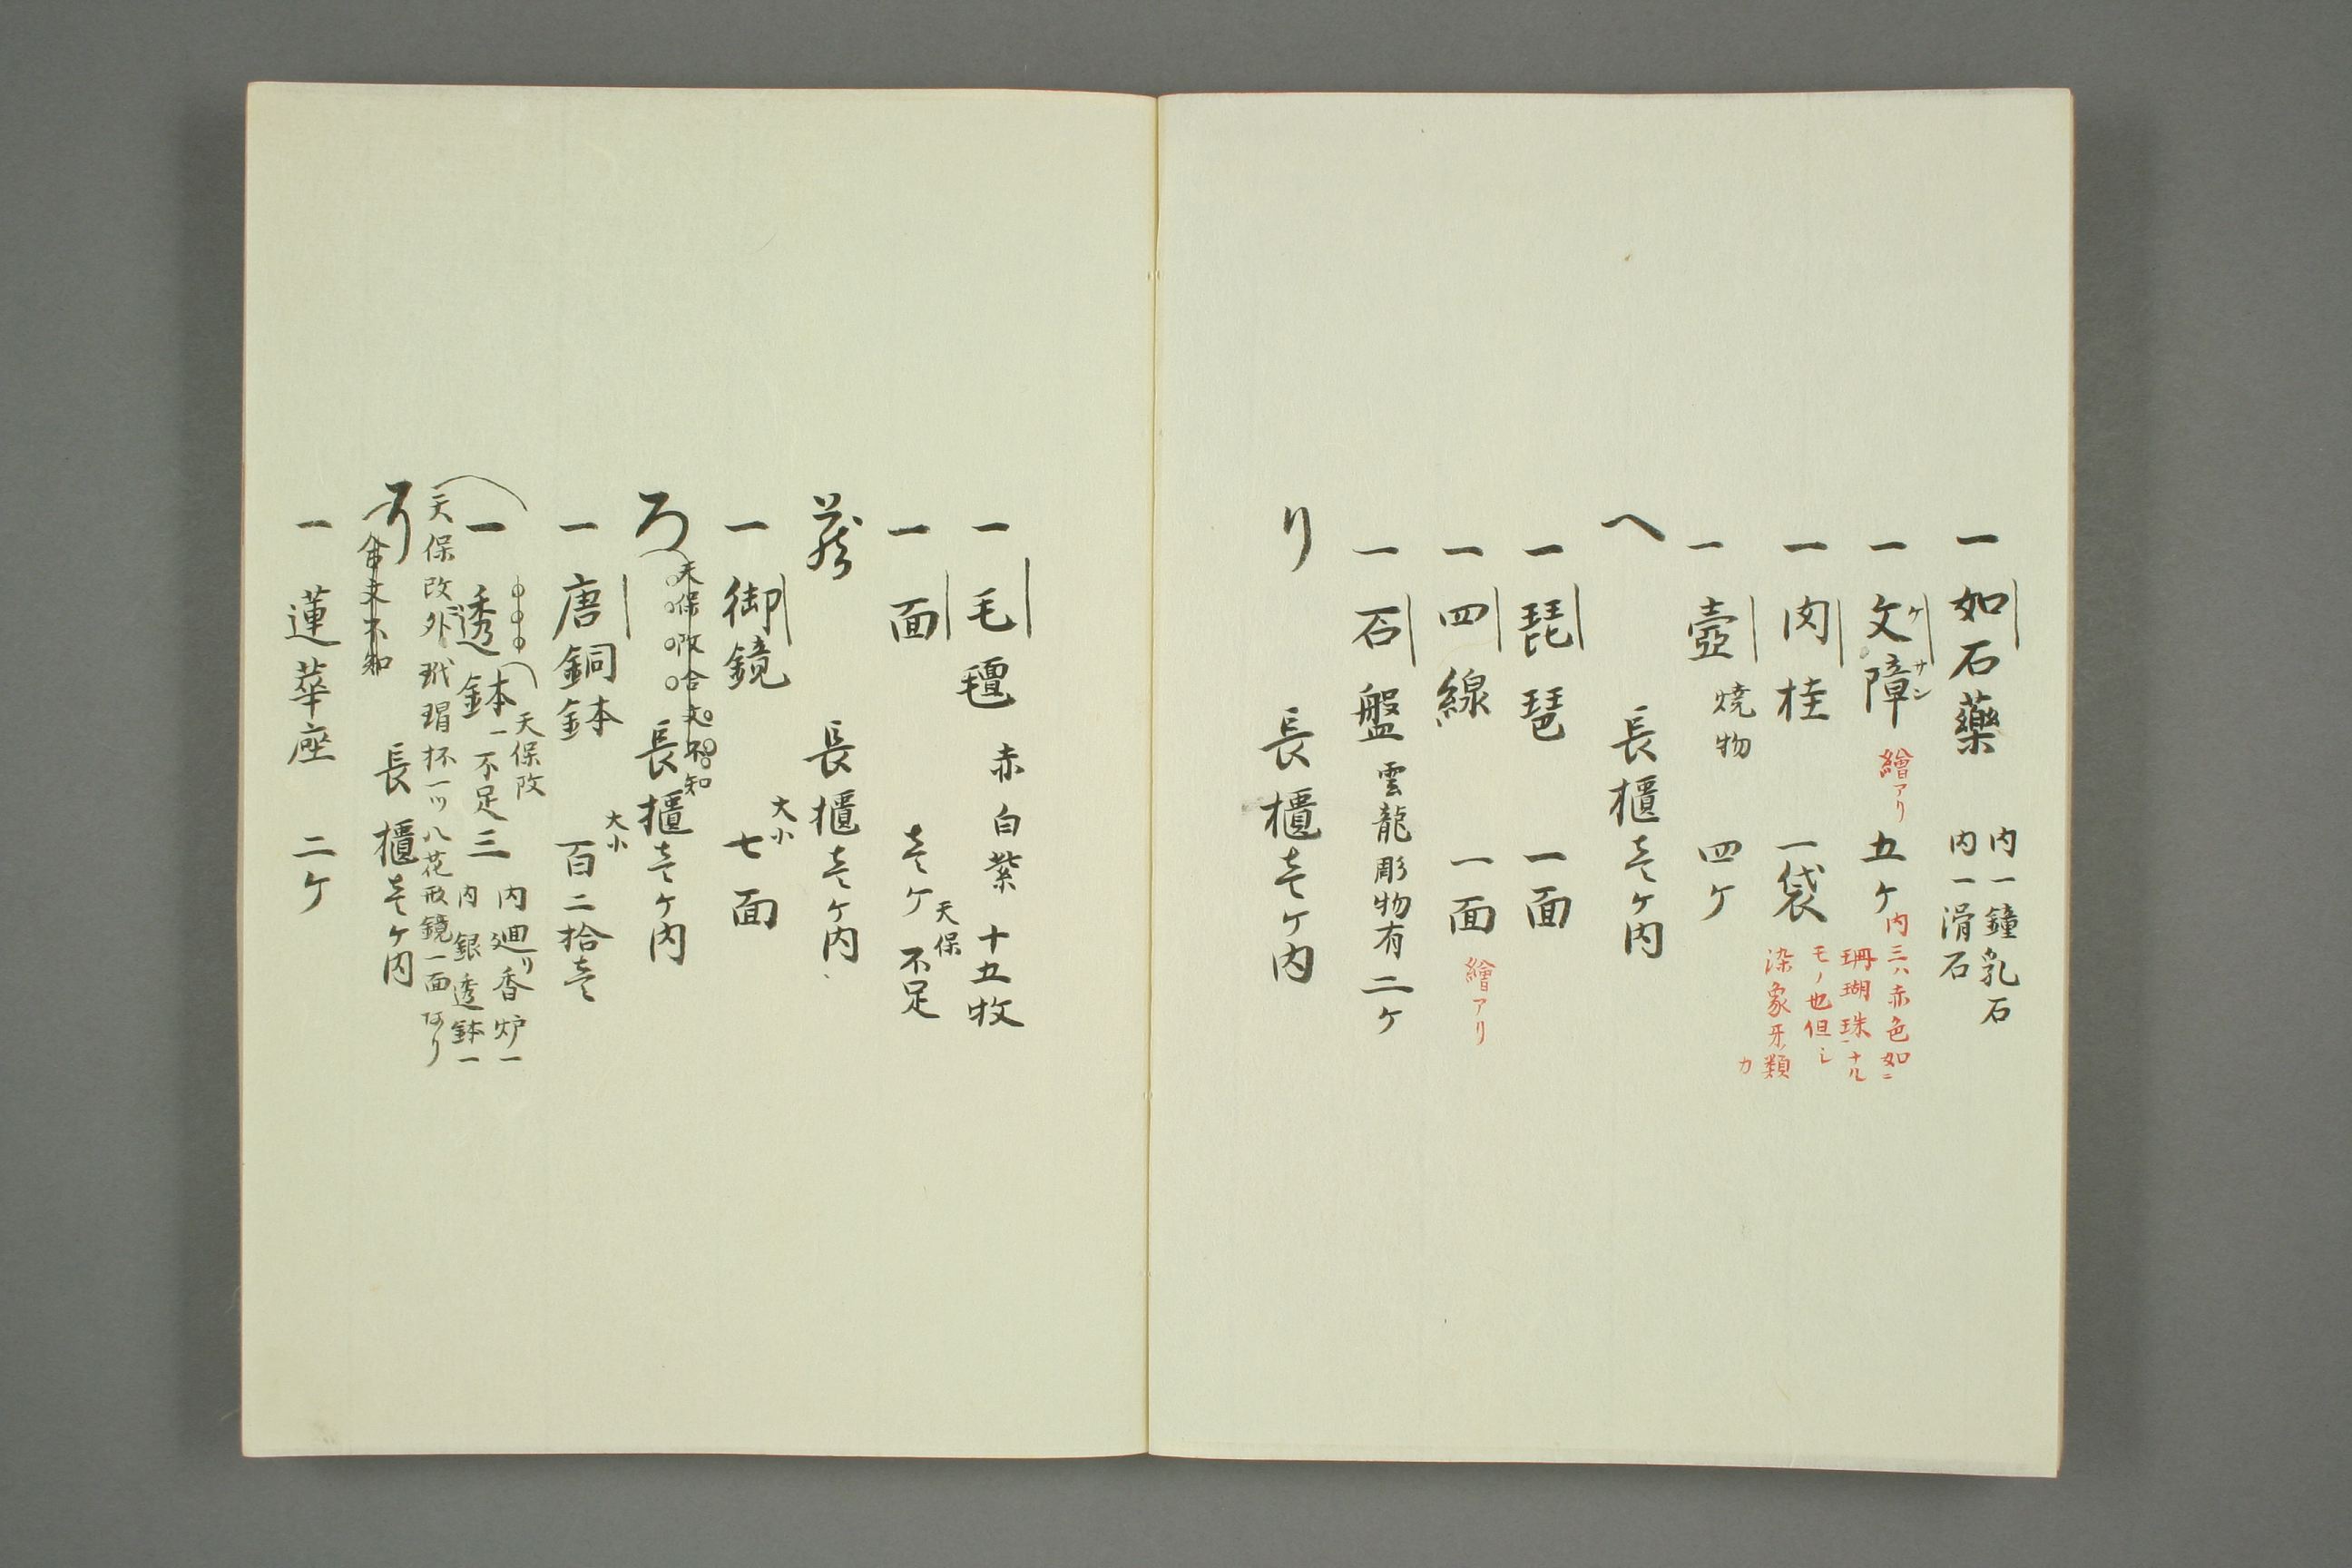 一如石藥 内一鐘乳石
内一滑石
一文障 繪アリ 五ケ
ケサン
内三ハ赤色如ニ
珊瑚珠ナル
モノ也但シ
染象牙類
カ
一肉桂 一袋
一壺 焼物 四ケ
へ 長櫃壱ケ内
一琵琶 一面
一四線 一面 繪アリ
一石盤 雲龍彫物有二ケ
り 長櫃壱ケ内
一毛氊 赤白紫 十五枚
一面 壱ケ 天保不足
長櫃壱ケ内
一御鏡 大小七面
ろ 長櫃壱ケ内
天保改合文不知
一唐銅鉢 大小百二拾壱
一透鉢 一不足 三
天保改
内廻り香炉一
内銀透鉢一
天保改外ニ玳瑁杯一ツ八花形鏡一面有り
長櫃壱ケ内
合文不知
一蓮華座 二ケ